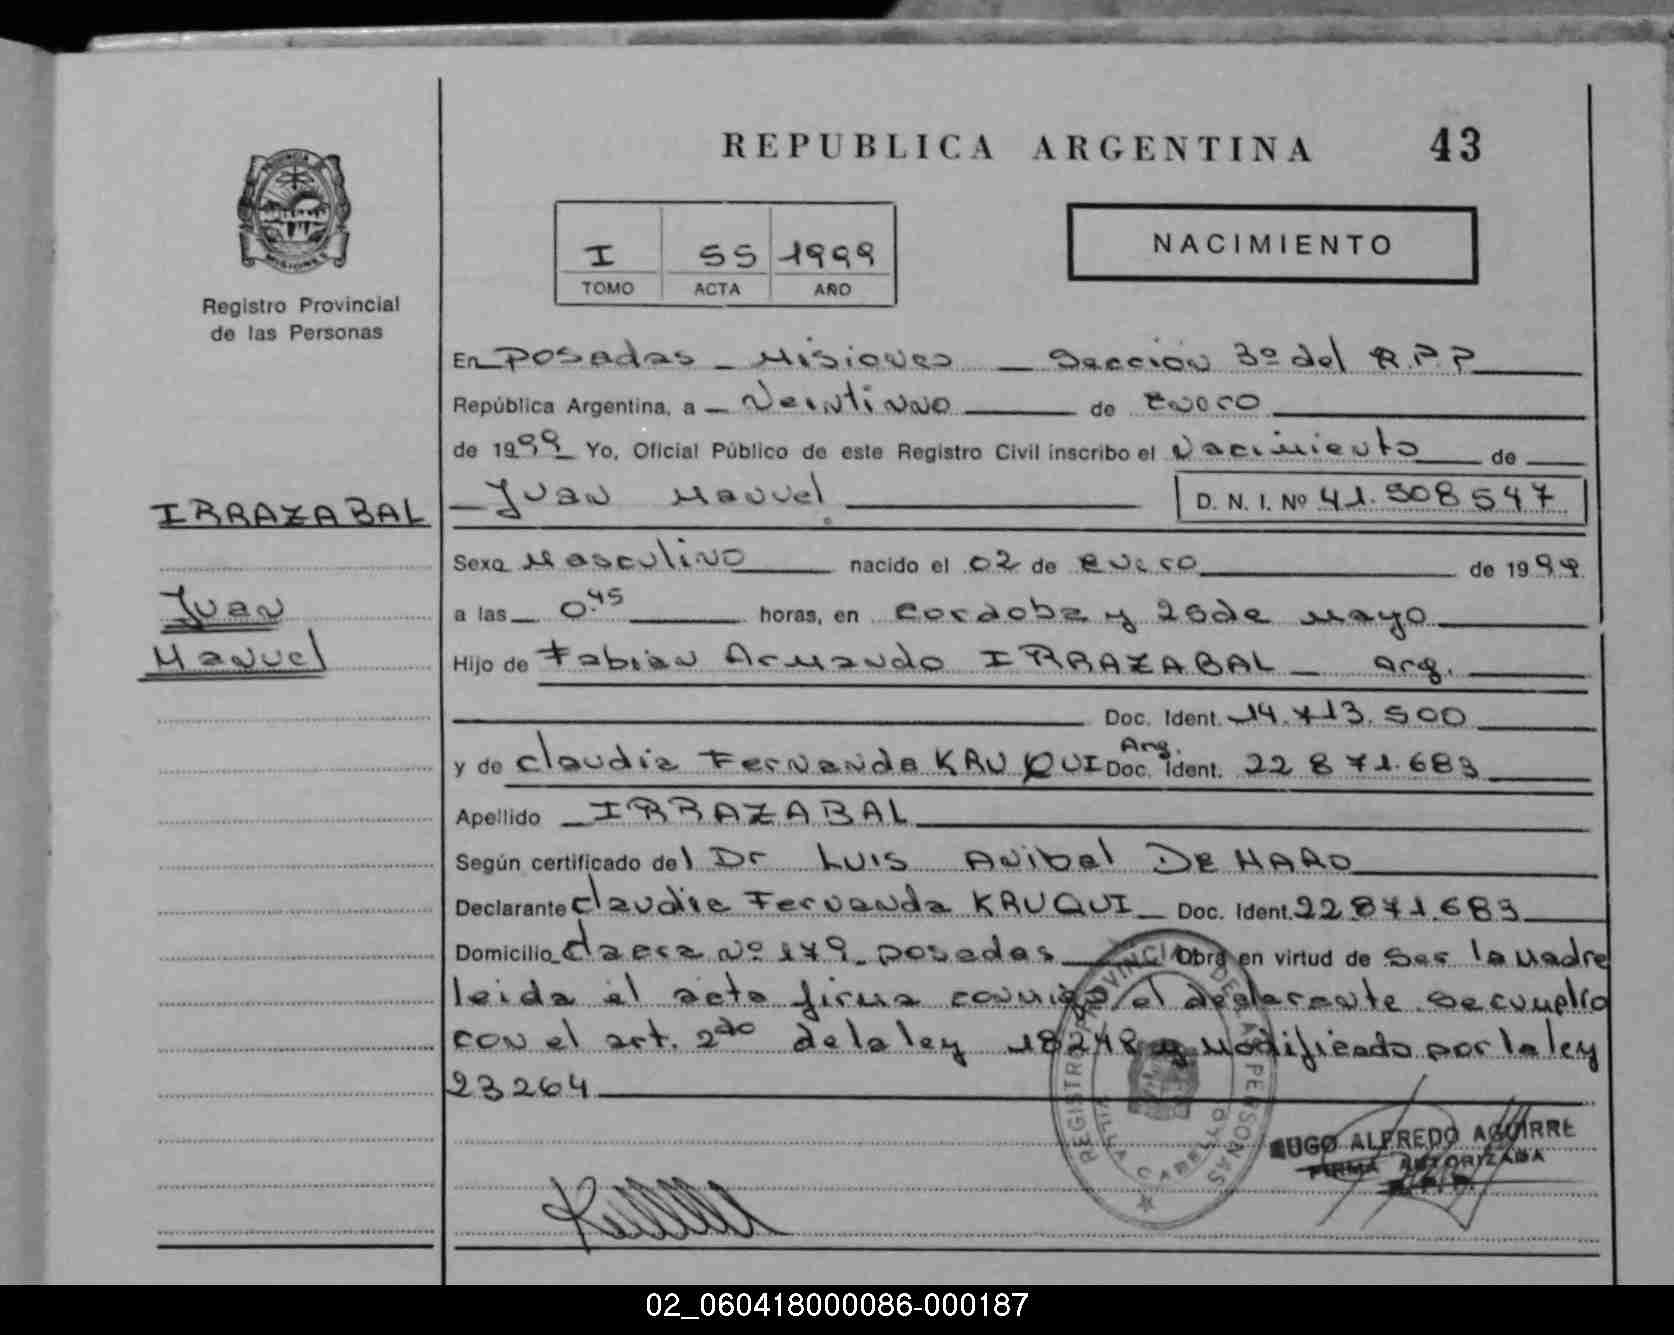 REPUBLICA ARGENTINA 43
PROVINCIA
MISIONES
Registro Provincial
de las Personas
I 55 1999
TOMO ACTA AÑO
NACIMIENTO
En Posadas - Misiones - Sección 3º del R.P.P
República Argentina, a - Veintiuno de Enero
de 1999 Yo, Oficial Público de este Registro Civil inscribo el Nacimiento de
IRRAZABAL
Juan Manuel D. N. I. Nº 41.508547
Sexo Masculino nacido el 02 de enero de 1999
Juan
a las 0.45 horas, en Cordoba y 25 de Mayo
Manuel
Hijo de Fabian Armando IRRAZABAL - Arg.
Doc. Ident. 14.713.500
y de Claudia Fernanda KRUQUI Arg. Doc. Ident. 22871.683
Apellido IRRAZABAL
Según certificado del Dr Luis Anibal DE HARO
Declarante Claudia Fernanda KRUQUI - Doc. Ident. 22871.683
Domicilio Nº 179 - Posadas Obra en virtud de Ser la Madre
leida el acta firma conmigo el declarante. Se cumplio
con el art. 2do de la ley 18248 y Modificado por la ley
23264
REGISTRO PROVINCIAL DE LAS PERSONAS
VILLA CABELLO
HUGO ALFREDO AGUIRRE
FIRMA AUTORIZADA
R.P.P.
02_060418000086-000187